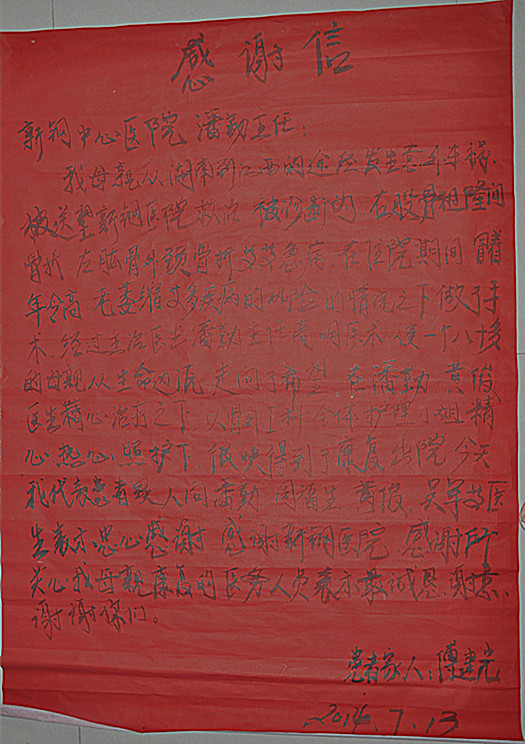 感谢信
新钢中心医院 潘勤主任:
我母亲从湖南到江西的途径发生意外车祸.
被送至新钢医院救治 被诊断为 右股骨粗隆间
骨折 左肱骨外颈骨折 等急病 在住院期间 冒着
年令高 老萎缩 等多疾病的风险的情况之下做了手
术. 经过主治医生潘勤主任高明医术 使一个八十多
的母亲从生命边 走向了希望 在潘勤 黄俊
医生精心治疗之下 以骨科全体护理小姐精
心.热心.照护下 很快得到了康复出院 今天
我代表患者家人向潘勤 周福生 黄俊 吴军等医
生表示忠心感谢 感谢新钢医院 感谢所
关心我母亲康复的医务人员表示最诚恳.谢意.
谢谢你们。
患者家人:傅建光
2014.7.13